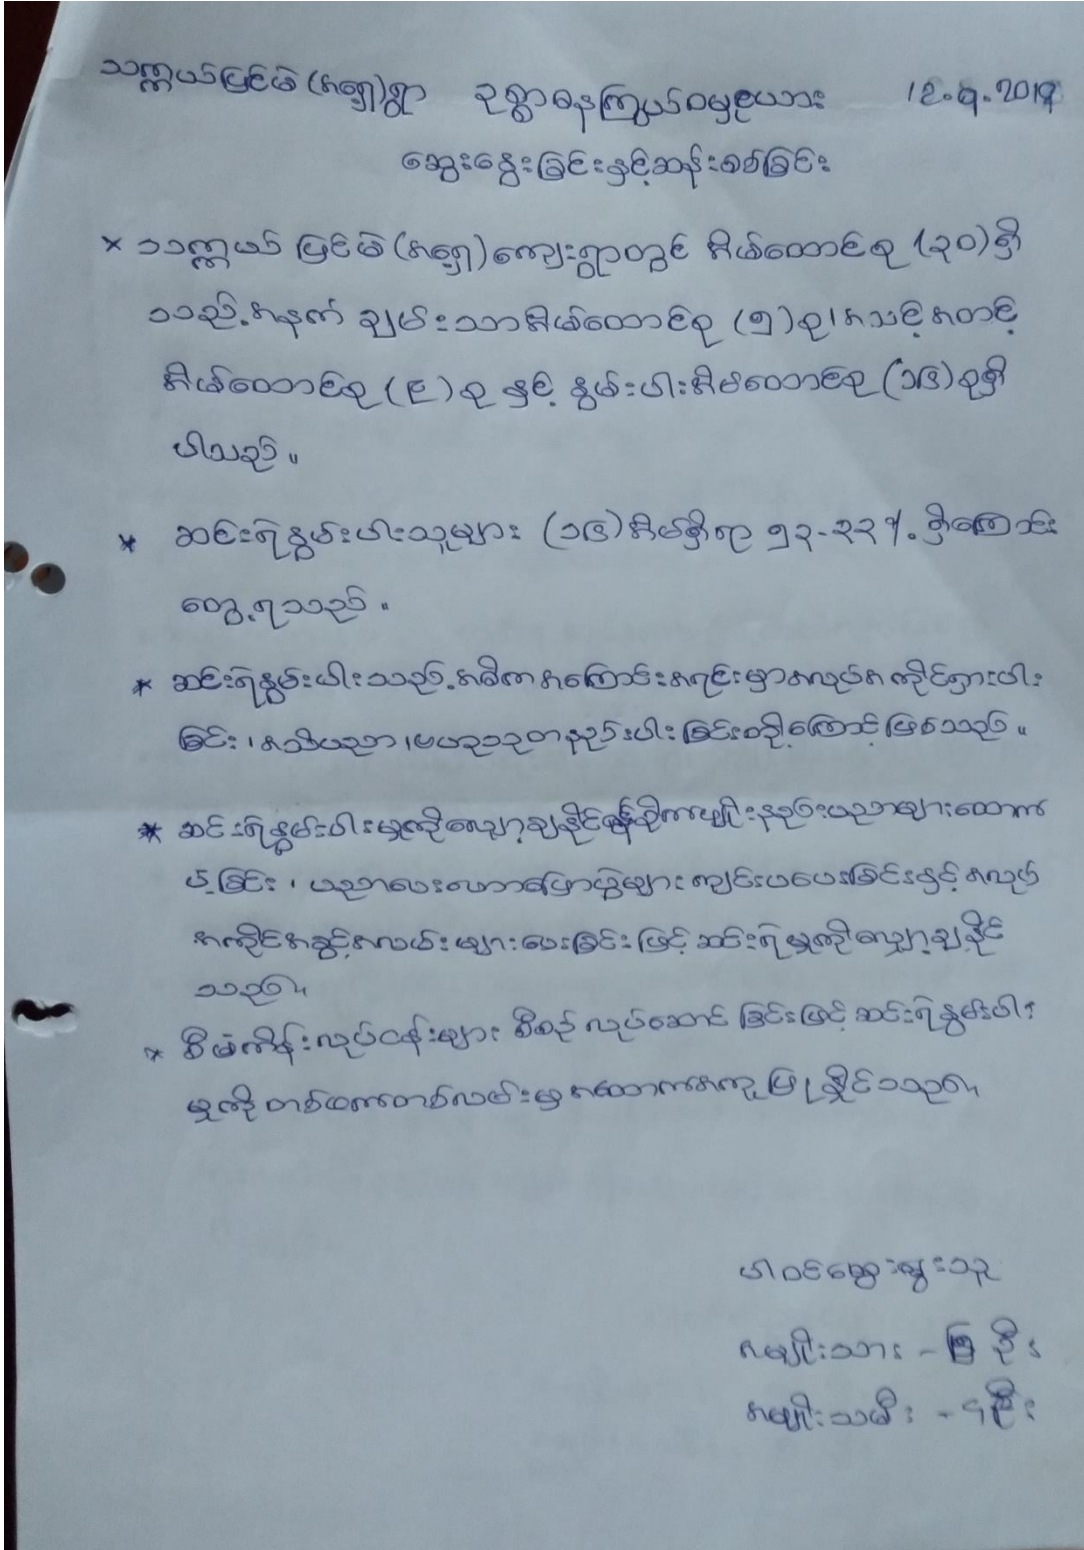 သက္ကယ်ပြင်မဲ (အရှေ့)ရွာ ဥစ္စာဓနကြွယ်ဝမှုဇယား 12.9.2019
ဆွေးနွေးခြင်းနှင့်ဆန်းစစ်ခြင်း
* သက္ကယ်ပြင်မဲ (အရှေ့)ကျေးရွာတွင် အိမ်ထောင်စု (၃၀)ရှိ
သည့်အနက် ချမ်းသာအိမ်ထောင်စု (၅)စု၊ အသင့်အတင့်
အိမ်ထောင်စု (၉)စု နှင့် နွမ်းပါးအိမ်ထောင်စု (၁၆)စုရှိ
ပါသည်။
* ဆင်းရဲနွမ်းပါးသူများ (၁၆)အိမ်ရှိရာ ၅၃.၃၃% ရှိကြောင်း
တွေ့ရသည်။
* ဆင်းရဲနွမ်းပါးသည့်အဓိကအကြောင်းအရင်းမှာအလုပ်အကိုင်ရှားပါး
ခြင်း၊ အသိပညာ၊ ဗဟုသုတနည်းပါးခြင်းတို့ကြောင့်ဖြစ်သည်။
* ဆင်းရဲနွမ်းပါးမှုကိုလျှော့ချနိုင်ရန်စိုက်ပျိုးနည်းပညာများထောက်
ပံ့ခြင်း၊ ပညာပေးဟောပြောပွဲများကျင်းပပေးခြင်းနှင့်အလုပ်
အကိုင်အခွင့်အလမ်းများပေးခြင်းဖြင့်ဆင်းရဲမှုကိုလျှော့ချနိုင်
သည်။
* စီမံကိန်းလုပ်ငန်းများ စီစဉ်လုပ်ဆောင်ခြင်းဖြင့်ဆင်းရဲနွမ်းပါး
မှုကိုတစ်ဖက်တစ်လမ်းမှအထောက်အကူပြုနိုင်သည်။
ပါဝင်ဆွေးနွေးသူ
အမျိုးသား - ဦး
အမျိုးသမီး - ၄ဦး